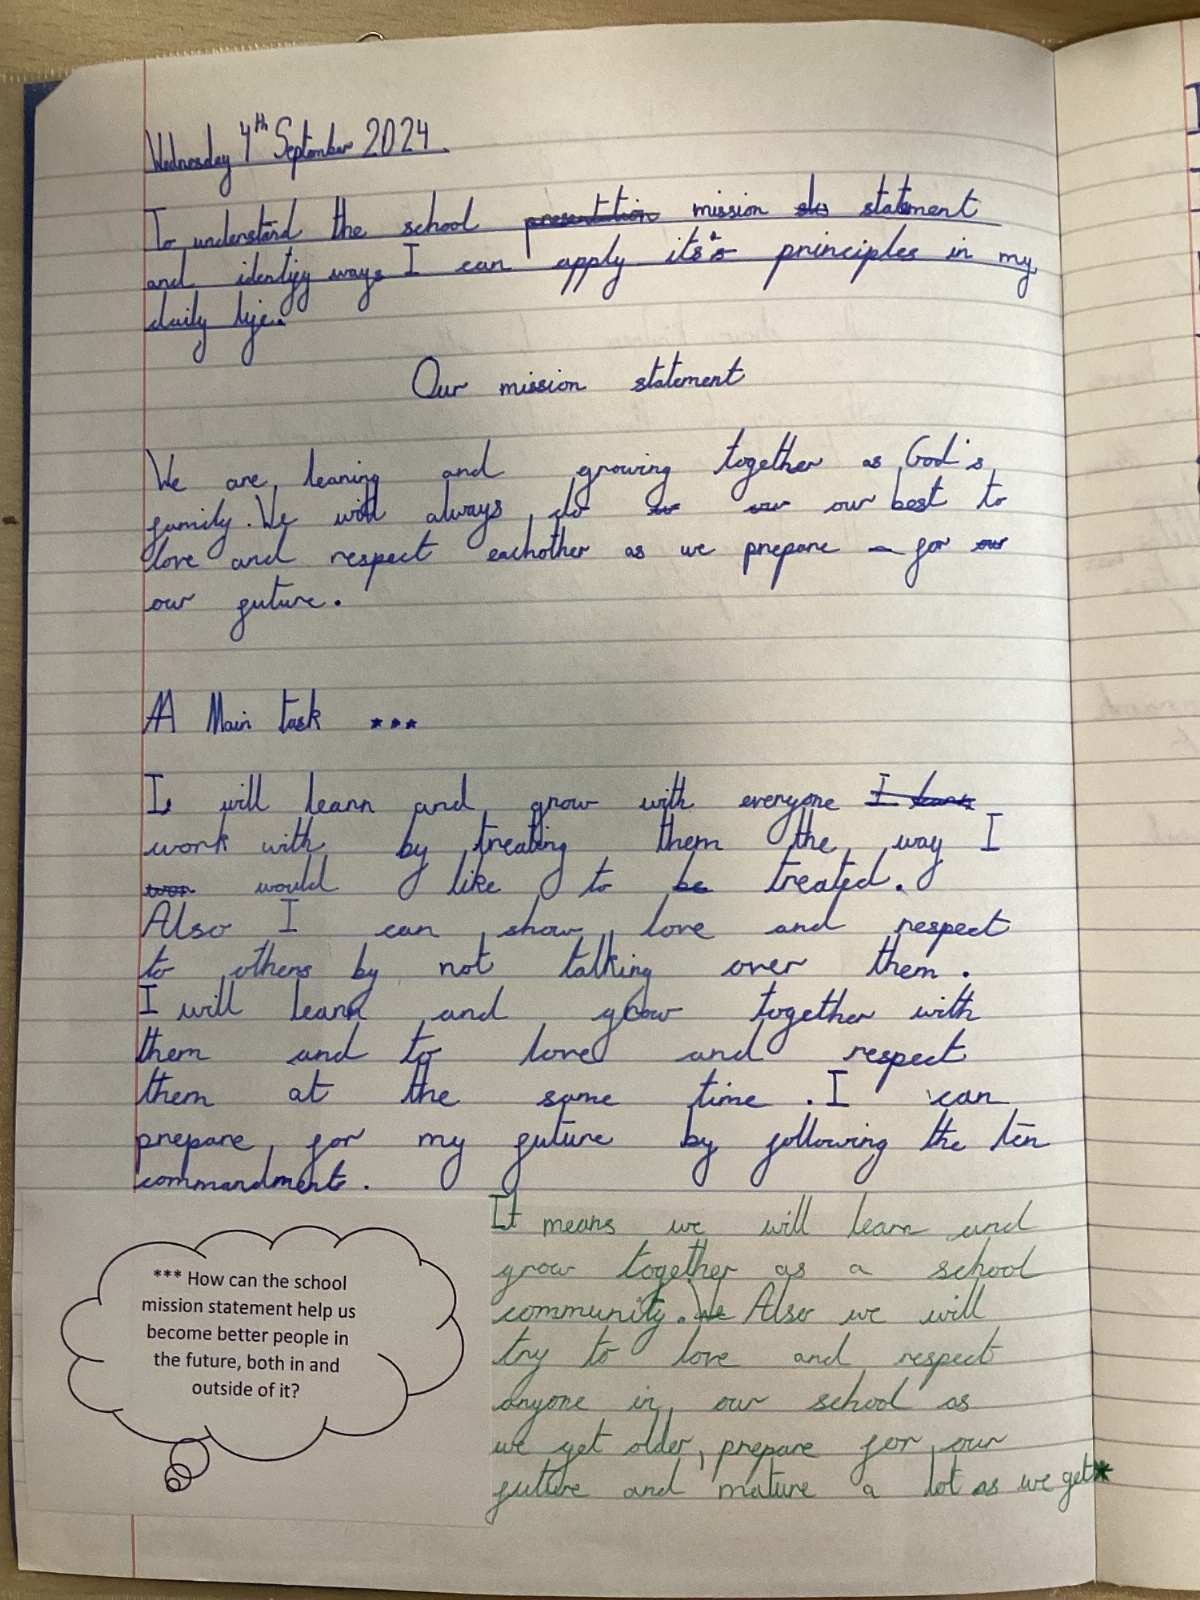 Wednesday 4th September 2024.
To understand the school presentation mission sta statement
and identify ways I can apply its's principles in my
daily life.
Our mission statement
We are leaning and growing together as God's
family. We will always do our our our best to
love and respect eachother as we prepare for our
our future.
A Main task ***
I will learn and grow with everyone I learn
work with by treating them the way I
wor would like to be treated.
Also I can show love and respect
to others by not talking over them.
I will learn and grow together with
them and to love and respect
them at the same time. I can
prepare for my future by following the ten
commandment.
*** How can the school
mission statement help us
become better people in
the future, both in and
outside of it?
It means we will learn and
grow together as a school
community. We Also we will
try to love and respect
anyone in our school as
we get older, prepare for our
future and mature a lot as we get*